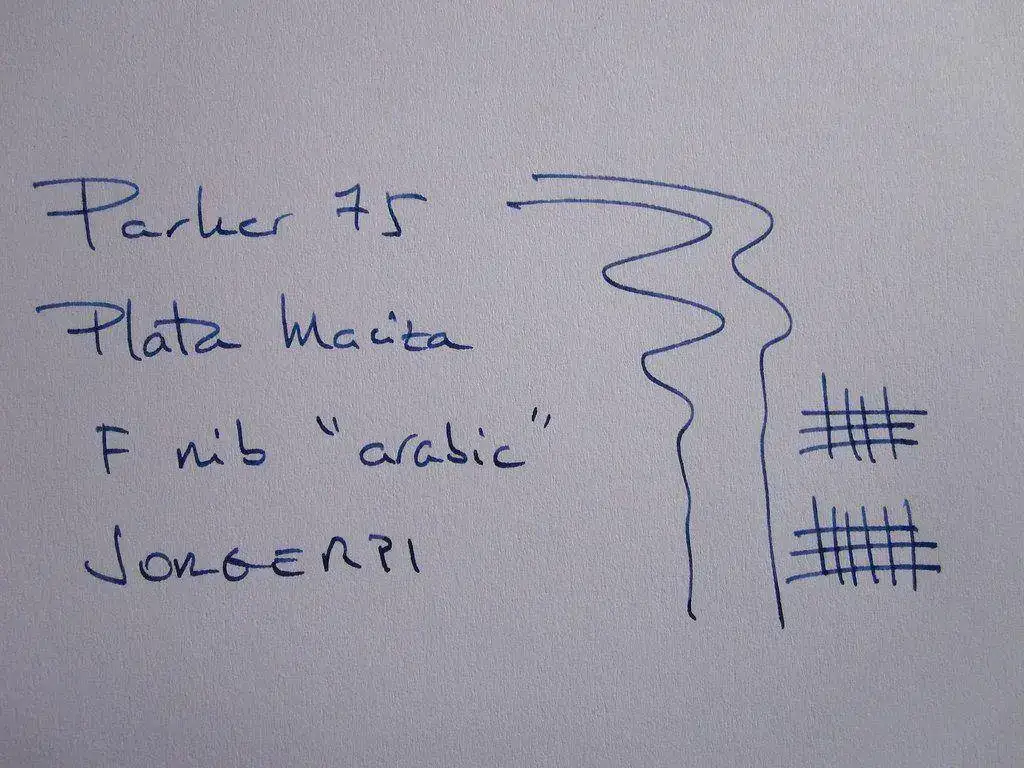 Parker 75
Plata Maciza
F nib "arabic"
JORGERPI